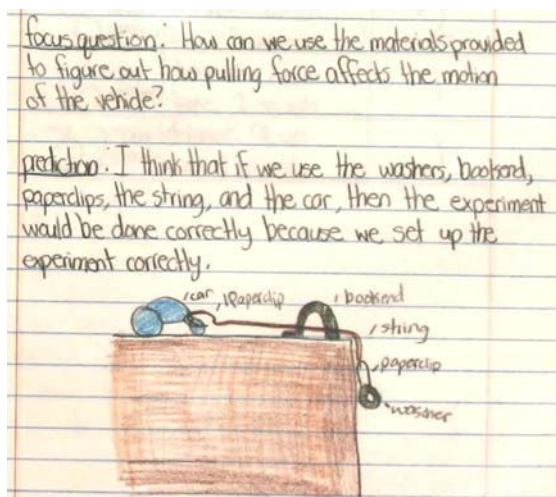 focus question: How can we use the materials provided
to figure out how pulling force affects the motion
of the vehicle?
prediction: I think that if we use the washers, bookend,
paperclips, the string, and the car, then the experiment
would be done correctly because we set up the
experiment correctly.
car, 1 paperclip
bookend
string
paperclip
washer